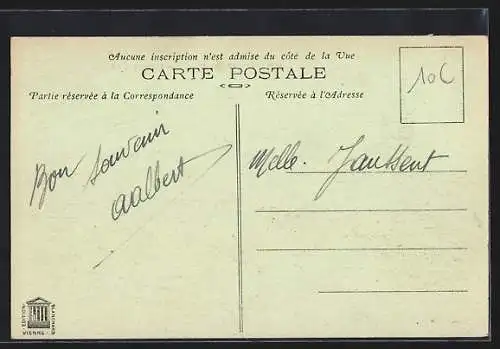 Aucune inscription n'est admise du côté de la Vue
CARTE POSTALE
Partie réservée à la Correspondance
Réservée à l'Adresse
10C
Bon souvenir
aalbert
Melle. Jaussent
EDITION BLANCHARD
VIENNE